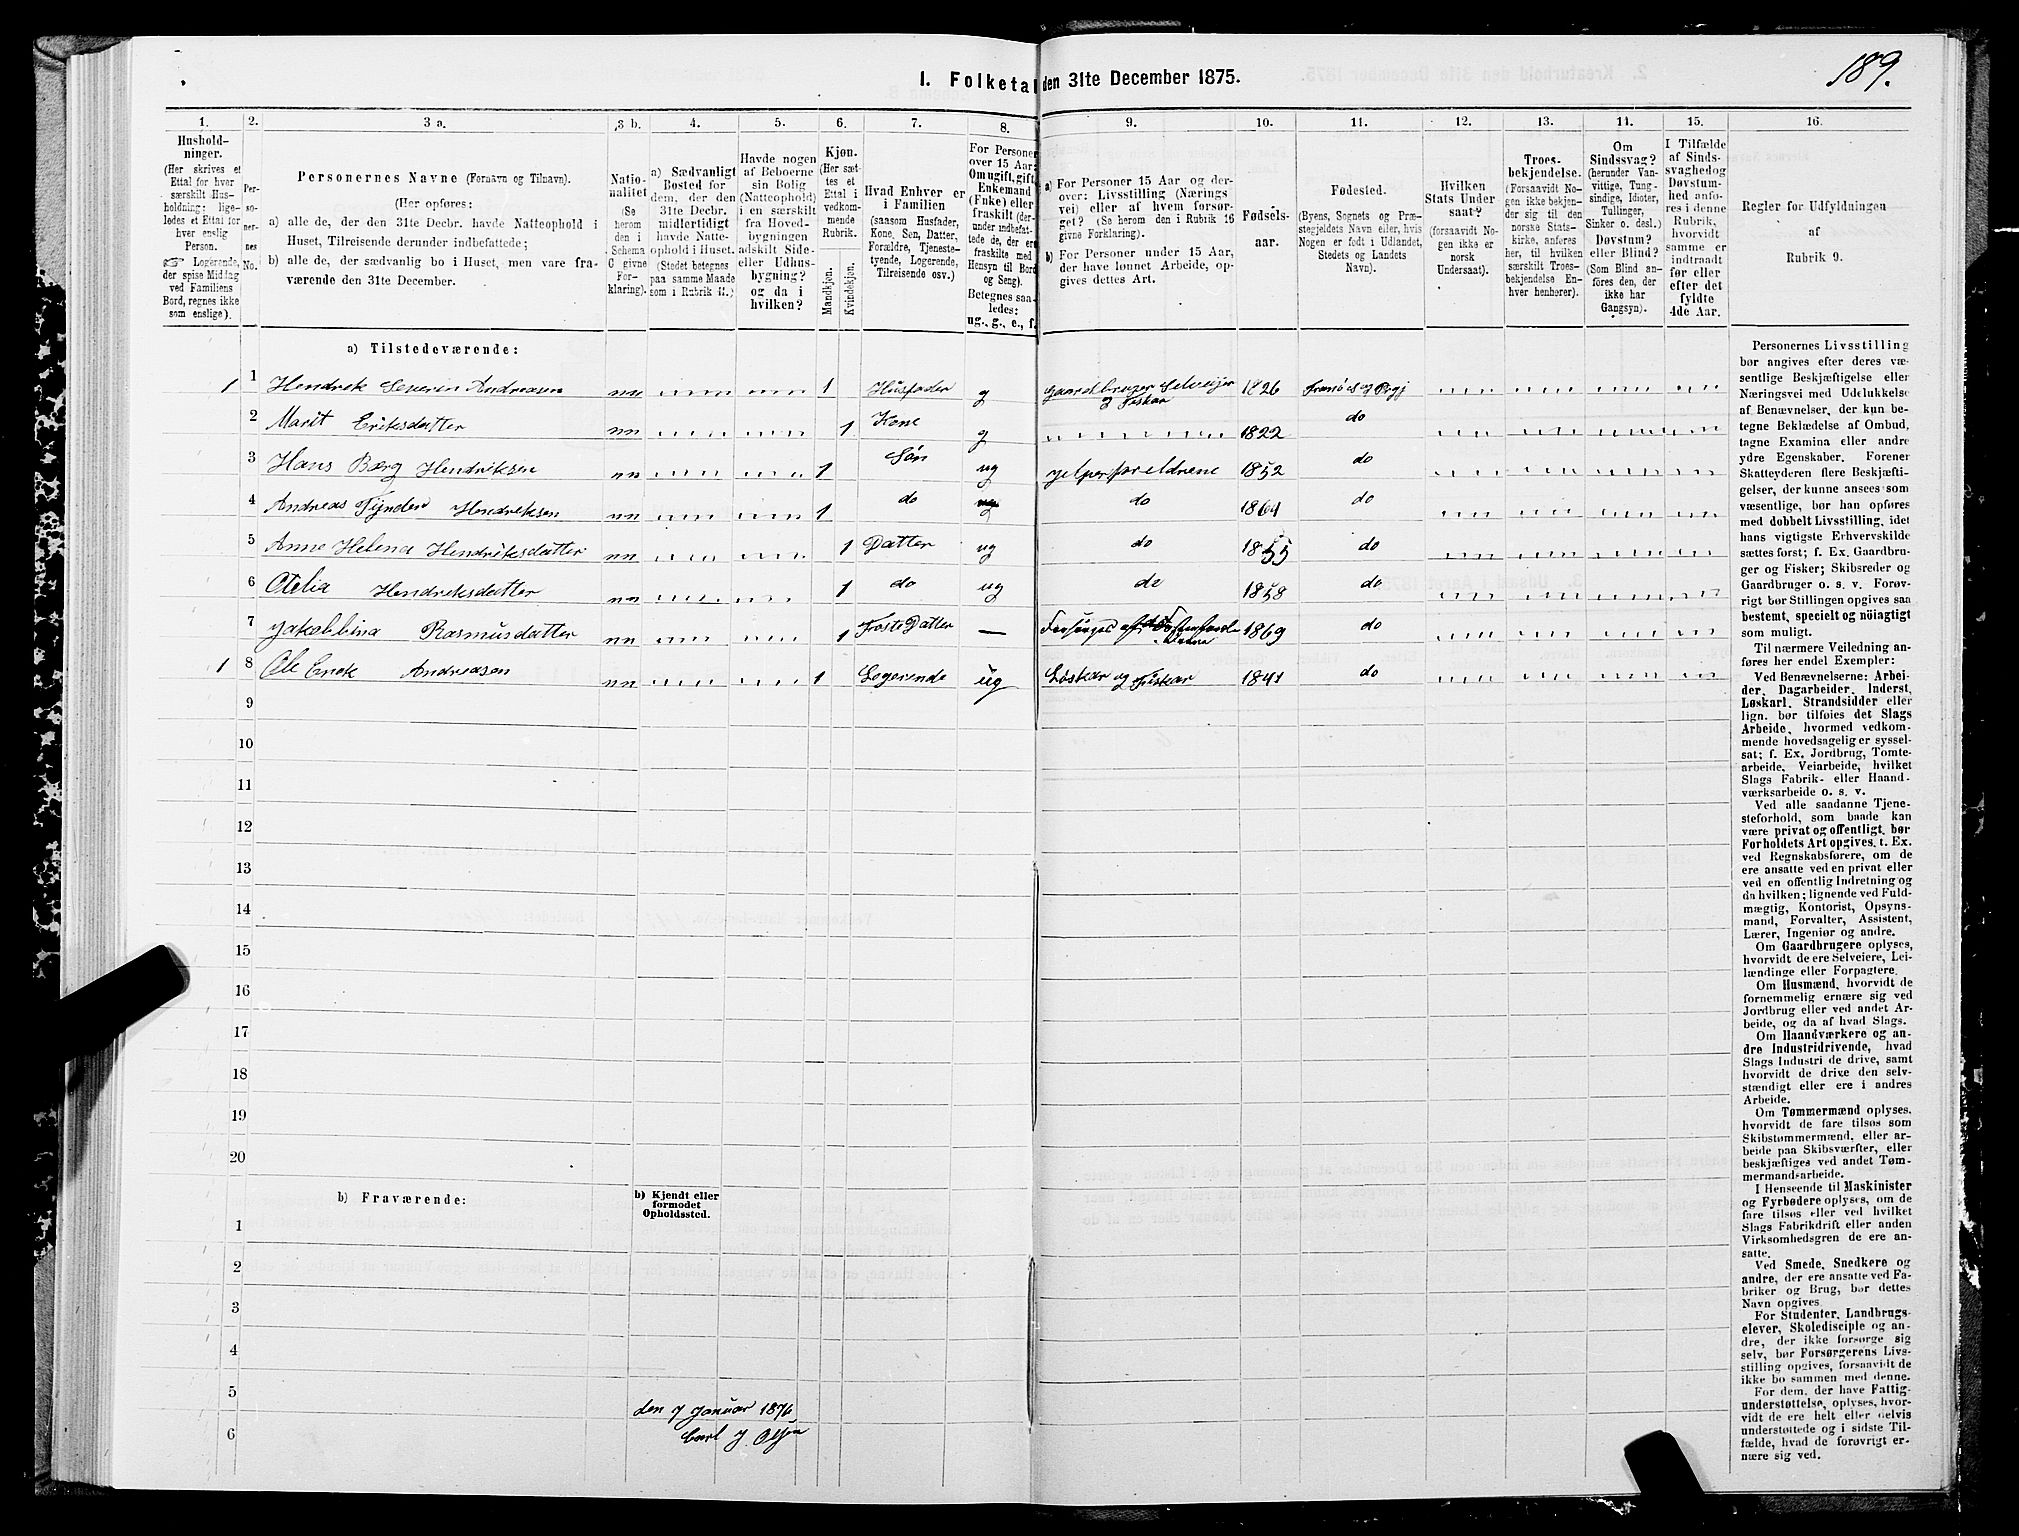 189.
1. Folketal den 31te December 1875.
1. 2. 3 a. 3 b. 4. 5. 6. 7. 8. 9. 10. 11. 12. 13. 14. 15. 16.
Husholdninger.
(Her skrives et
Ettal for hver
særskilt Husholdning:
ligeledes et Ettal for
hver enslig
Person.
☞ Logerende,
der spise Middag
ved Familiens
Bord, regnes ikke
som enslige).
Personernes No.
Personernes Navne (Fornavn og Tilnavn).
(Her opføres:
a) alle de, der den 31te Decbr. havde Natteophold i
Huset, Tilreisende derunder indbefattede;
b) alle de, der sædvanlig bo i Huset, men vare fraværende
den 31te December.
Nationalitet
(Se
herom
den i
Schema
C givne
Forklaring).
a) Sædvanligt
Bosted for
dem, der den
31te Decbr.
midlertidigt
havde Natteophold
i Huset.
(Stedet betegnes
paa samme Maade
som i Rubrik 11.)
Havde nogen
af Beboerne
sin Bolig
(Natteophold)
i en særskilt
fra Hovedbygningen
adskilt Side-
eller Udhusbygning?
og da i
hvilken?
Kjøn.
(Her sættes
et
Ettal i
vedkommende
Rubrik.
Mandkjøn.
Kvindekjøn.
Hvad Enhver er
i Familien
(saasom Husfader,
Kone, Søn, Datter,
Forældre, Tjenestetyende,
Logerende,
Tilreisende osv.)
For Personer
over 15 Aar:
Om ugift, gift,
Enkemand
(Enke) eller
fraskilt (derunder
indbefattede
de, der ere
fraskilte med
Hensyn til Bord
og Seng).
Betegnes saaledes:
ug., g., e., f.
a) For Personer 15 Aar og derover:
Livsstilling (Næringsvei)
eller af hvem forsørget?
(Se herom den i Rubrik 16
givne Forklaring).
b) For Personer under 15 Aar,
der have lønnet Arbeide, opgives
dettes Art.
Fødselsaar.
Fødested.
(Byens, Sognets og Præstegjeldets
Navn eller, hvis
Nogen er født i Udlandet,
Stedets og Landets
Navn).
Hvilken
Stats Undersaat?
(forsaavidt Nogen
ikke er
norsk
Undersaat).
Troesbekjendelse.
(Forsaavidt Nogen
ikke bekjender
sig til den
norske Statskirke,
anføres
her, til hvilken
særskilt Troesbekjendelse
Enhver
henhører).
Om
Sindssvag?
(herunder Vanvittige,
Tungsindige,
Idioter,
Tullinger,
Sinker o. desl.)
Døvstum?
eller Blind?
(Som Blind anføres
den, der
ikke har
Gangsyn).
I Tilfælde
af Sindssvaghed
og
Døvstumhed
anføres
i denne
Rubrik,
hvorvidt
samme er
indtraadt
før eller
efter det
fyldte
4de Aar.
Regler for Udfyldningen
af
Rubrik 9.
a) Tilstedeværende:
1 1 Hendrik Severin Andreasen nn 1 Husfader g gaardbruger Selveijer og Fisker 1826 Tranøes Prgj
2 Marit Eriksdatter nn 1 Kone g 1822 do
3 Hans Borg Hendriksen nn 1 Søn ug jelper foreldrene 1852 do
4 Andreas Tynder Hendriksen nn 1 do do 1861 do
5 Anne Helena Hendriksdatter nn 1 Datter ug do 1855 do
6 Otelia Hendriksdatter nn 1 do ug do 1858 do
7 Jakobbina Rasmusdatter nn 1 Foste Datter — 1869 do
1 8 Ole Erick Andreasen nn 1 Logerende ug Løskar og Fiskar 1841 do
9
10
11
12
13
14
15
16
17
18
19
20
b) Fraværende:
b) Kjendt eller
formodet
Opholdssted.
1
2
3
4
5
6
den 7 Januar 1876
Carl J. Olsen
Personernes Livsstilling
bør angives efter deres væsentlige
Beskjæftigelse eller
Næringsvei med Udelukkelse
af Benævnelser, der kun betegne
Beklædelse af Ombud,
tagne Examina eller andre
ydre Egenskaber. Forener
Skatteyderen flere Beskjæftigelser,
der kunne ansees som
væsentlige, bør han opføres
med dobbelt Livsstilling, idet
hans vigtigste Erhvervskilde
sættes først; f. Ex. Gaardbruger
og Fisker; Skibsreder og
Gaardbruger o. s. v. Forøvrigt
bør Stillingen opgives saa
bestemt, specielt og nöiagtigt
som muligt.
Til nærmere Veiledning anføres
her endel Exempler:
Ved Benævnelserne: Arbeider,
Dagarbeider, Inderst,
Løskarl, Strandsidder eller
lign. bør tilføies det Slags
Arbeide, hvormed vedkommende
hovedsagelig er sysselsat;
f. Ex. Jordbrug, Tomtearbeide,
Veiarbeide, hvilket
Slags Fabrik- eller Haandværksarbeide
o. s. v.
Ved alle saadanne Tjenesteforhold,
som baade kan
være privat og offentligt, bør
Forholdets Art opgives, t. Ex.
ved Regnskabsførere, om de
ere ansatte ved en privat eller
ved en offentlig Indretning og
da hvilken; lignende ved Fuldmægtig,
Kontorist, Opsynsmand,
Forvalter, Assistent,
Lærer, Ingeniør og andre.
Om Gaardbrugere oplyses,
hvorvidt de ere Selveiere, Leilændinge
eller Forpagtere.
Om Husmænd, hvorvidt de
fornemmelig ernære sig ved
Jordbrug eller ved andet Arbeide,
og da af hvad Slags.
Om Haandværkere og andre
Industridrivende, hvad
Slags Industri de drive, samt
hvorvidt de drive den selvstændigt
eller ere i andres
Arbeide.
Om Tømmermænd oplyses,
hvorvidt de fare tilsøs som
Skibstømmermænd, eller arbeide
paa Skibsværfter, eller
beskjæftiges ved andet Tømmermandsarbeide.
I Henseende til Maskinister
og Fyrbødere oplyses, om de
fare tilsøs eller ved hvilket
Slags Fabrikdrift eller anden
Virksomhedsgren de ere ansatte.
Ved Smede, Snedkere og
andre, der ere ansatte ved Fabriker
og Brug, bør dettes
Navn opgives.
For Studenter, Landbrugselever,
Skoledisciple og andre,
der ikke forsørge sig
selv, bør Forsørgerens Livsstilling
opgives, forsaavidt de
ikke bo sammen med denne.
For dem, der have Fattigunderstøttelse,
oplyses, hvorvidt
de ere helt eller delvis
understøttede og i sidste Tilfælde,
hvad de forøvrigt ernære
sig ved.